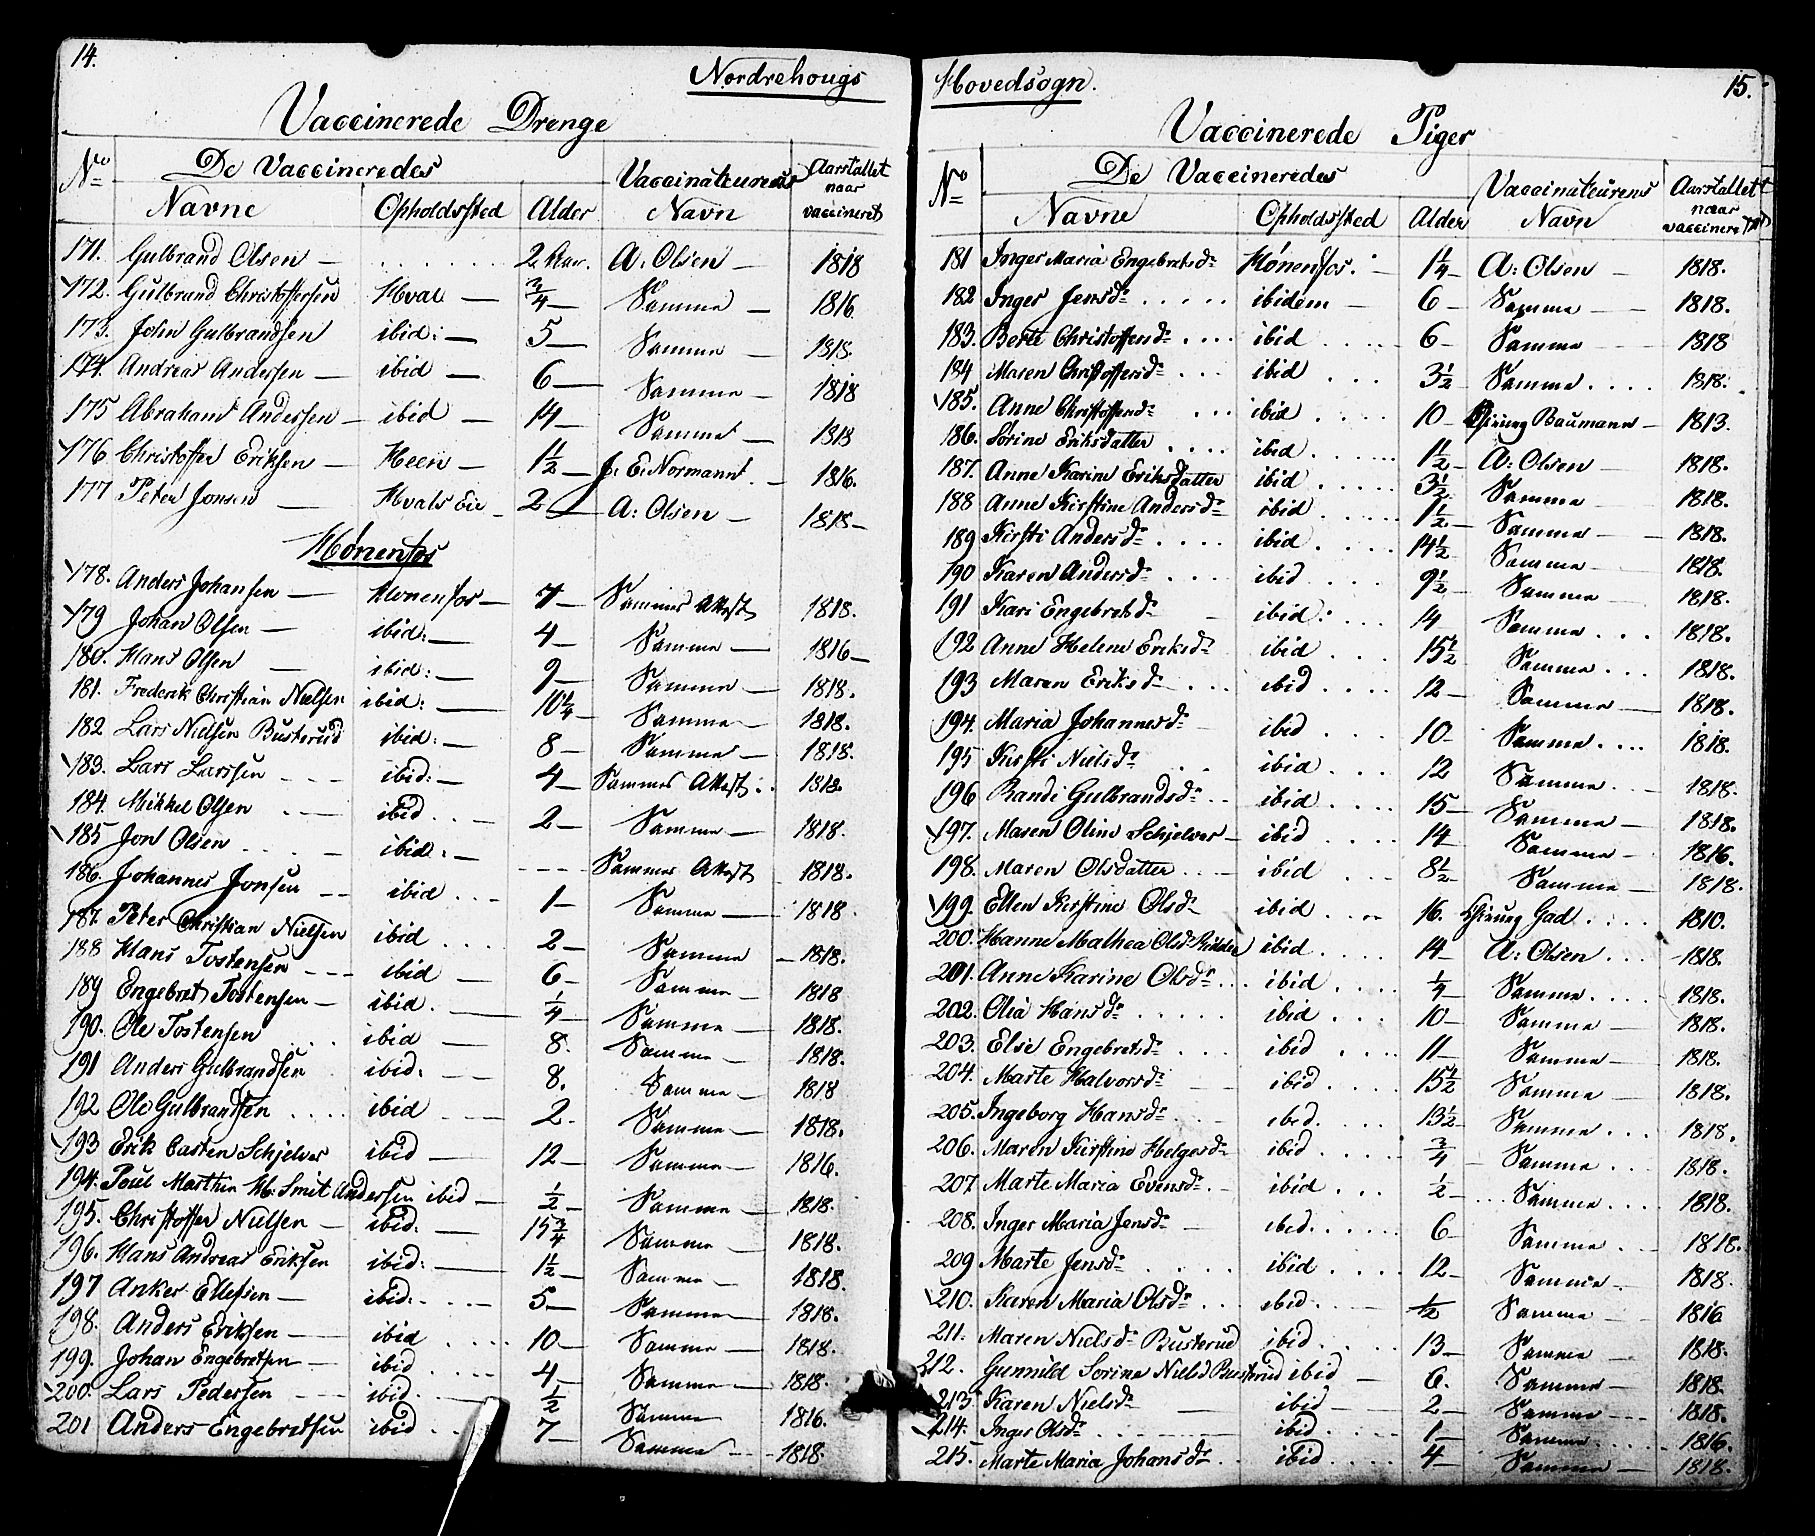 14.
Nordrehougs
Vaccinerede Drenge
No De Vaccineredes Vaccinateurens Aarstallet naar vaccineret
Navne Opholdssted Alder Navn
171. Gulbrand Olsen — . . . . . . 2 Aar. A: Olsen — 1818
172. Gulbrand Christoffersen Hval — 3/4 — Samme — 1816
173. John Gulbrandsen ibid: — 5 — Samme — 1818.
174. Andreas Andersen — ibid — 6 — Samme — 1818
175 Abraham Andersen — ibid — 14 — Samme — 1818
176 Christoffer Eriksen — Heen — 1 1/2 — J. E. Normann . — 1816.
177 Peter Jonsen — Hvals Eie — 2 — A: Olsen — 1818 —
Hønenfos
178. Anders Johansen — Hønenfos — 7 — Sammes Attest 1818.
179 Johan Olsen — ibid: — 4 — Samme — 1816 —
180. Hans Olsen — ibid: — 9 — Samme — 1818.
181. Frederik Christian Nielsen ibid: — 10 1/4 — Samme — 1818.
182 Lars Nielsen Busterud ibid: — 8 — Samme — 1818.
183. Lars Larssen - - - ibid: — 4 — Sammes Attest . . 1818.
184. Mikkel Olsen . . — ibid . . . 2 — Samme — 1818.
185 Jon Olsen . . . . — ibid: — - - - - Sammes Attest 1818.
186. Johannes Jonsen - - ibid . . . 1 — Samme — 1818.
187. Peter Christian Nielsen ibid . . . . 2 — Samme — 1818.
188 Hans Tostensen - - - ibid — 6 — Samme — 1818
189 Engebret Tostensen — ibid. — 1/4 — Samme — 1818.
190. Ole Tostensen . . . ibid — 8. Samme — 1818.
191 Anders Gulbrandsen . ibid: — 8. Samme — 1818
192 Ole Gulbrandsen . . . . ibid — 2. Samme — 1818.
193 Erik Casten Schjelver ibid — 12 — Samme — 1816.
194. Poul Marthin H: Smit Andersen ibid — 1/2 — Samme — 1818.
195. Christoffer Nielsen — ibid. — 15 3/4 Samme — 1818.
196. Hans Andreas Eriksen ibid: — 1 1/2 — Samme — 1818.
197 Anker Ellefsen — ibid. . . — 5 — Samme — 1818.
198. Anders Eriksen — ibid . . . . 10 — Samme — 1818.
199. Johan Engebretsen — ibid . . . . 4 — Samme — 1818.
200. Lars Pedersen - - - ibid . 1/2 Samme 1816.
201 Anders Engebretsen ibid . . 7 — Samme - - - 1818.
15.
Hovedsogn.
Vaccinerede Piger
No De Vaccineredes Vaccinateurens Aarstallet naar vaccineret
Navne Opholdssted Alder Navn
181 Inger Maria Engebretsdr Hønenfos. 1 1/4 — A: Olsen — 1818.
182 Inger Jensdr . . . . . ibidem — 6 — Samme — 1818.
183. Berte Christoffersdr . . . . ibid . . . . . 6 — Samme 1818
184 Maren Christoffersdr . . . . ibid . . . . 3 1/2 Samme . . . . 1818.
185. Anne Christoffersdr . . . ibid . . . . 10 — Chirurg Baumann — 1813.
186. Sorine Eriksdatter . . . . ibid . . . . . . 1 1/2 — A: Olsen — 1818.
187. Anne Karine Eriksdatter ibid . . . . . 3 1/2 Samme — 1818.
188 Anne Kirstine Andersdr ibid . . . . . 1 1/2 — Samme — 1818.
189 Kirsti Andersdr . . . . ibid . . . . . 14 1/2 Samme — 1818.
190 Karen Andersdr . . . . ibid . . . . 9 1/2 — Samme — 1818.
191 Kari Engebretsdr — ibid: . . . 14 — Samme . . . 1818.
192 Anne Helene Eriksdr ibid . . . 15 1/2 Samme . . . 1818.
193 Maren Eriksdr . . . ibid . . . . 12 — Samme — 1818.
194. Maria Johannesdr ibid . . . . 10 — Samme . . . . 1818.
195 Kirsti Nielsdr . . ibid . . . . 12 Samme . . . 1818.
196 Randi Gulbrandsdr . . ibid . . . . 15 — Samme — 1818.
197. Maren Oline Schjelver — ibid . . . . 14 — Samme — 1816.
198. Maren Olsdatter . . . . ibid . . . 8 1/2 — Samme — 1818.
199. Ellen Kirstine Olsdr ibid . . . . 16. Chirurg Gad . . . . 1810.
200. Hanne Mathea Olsdr ibid . . . . 14 — A: Olsen . . . 1818.
201. Anne Karine Olsdr . . . ibid . . . . 1/4 — Samme . . . . 1818.
202. Olia Hansdr . . . . . ibid . . . . 10 — Samme — 1818.
203. Else Engebretsdr . . . ibid . . . . 11 — Samme — 1818.
204. Marte Halvorsdr — ibid . . . . 15 1/2 Samme — 1818.
205. Ingeborg Hansdr . . . ibid. . . . . 13 1/2 Samme . . . 1818.
206. Maren Kirstine Helgesdr ibid . . . . 3/4 — Samme . . . 1818.
207 Marte Maria Evensdr . — ibid . . . 1/2 — . . . Samme — 1818.
208. Inger Maria Jensdr — ibid. . . . . . 6 — Samme . . — 1818.
209 Marte Jensdr . . . . . ibid . . . . 12 — Samme — 1818.
210. Karen Maria Olsdr . . . ibid . . . . — 1/2 Samme — 1816
211. Maren Nielsdr Busterud ibid . . . . 13 — Samme — 1818.
212. Gunnild Sorine Nielsd Busterud ibid — 6. Samme — 1818.
213 Karen Nielsdr — ibid — 2 — Samme - - - 1818.
214. Inger Olsdr . . . . ibid . . . . 1 — Samme . . . . 1816.
215. Marte Maria Johansdr . . ibid . . . . 4 — Samme — 1818.